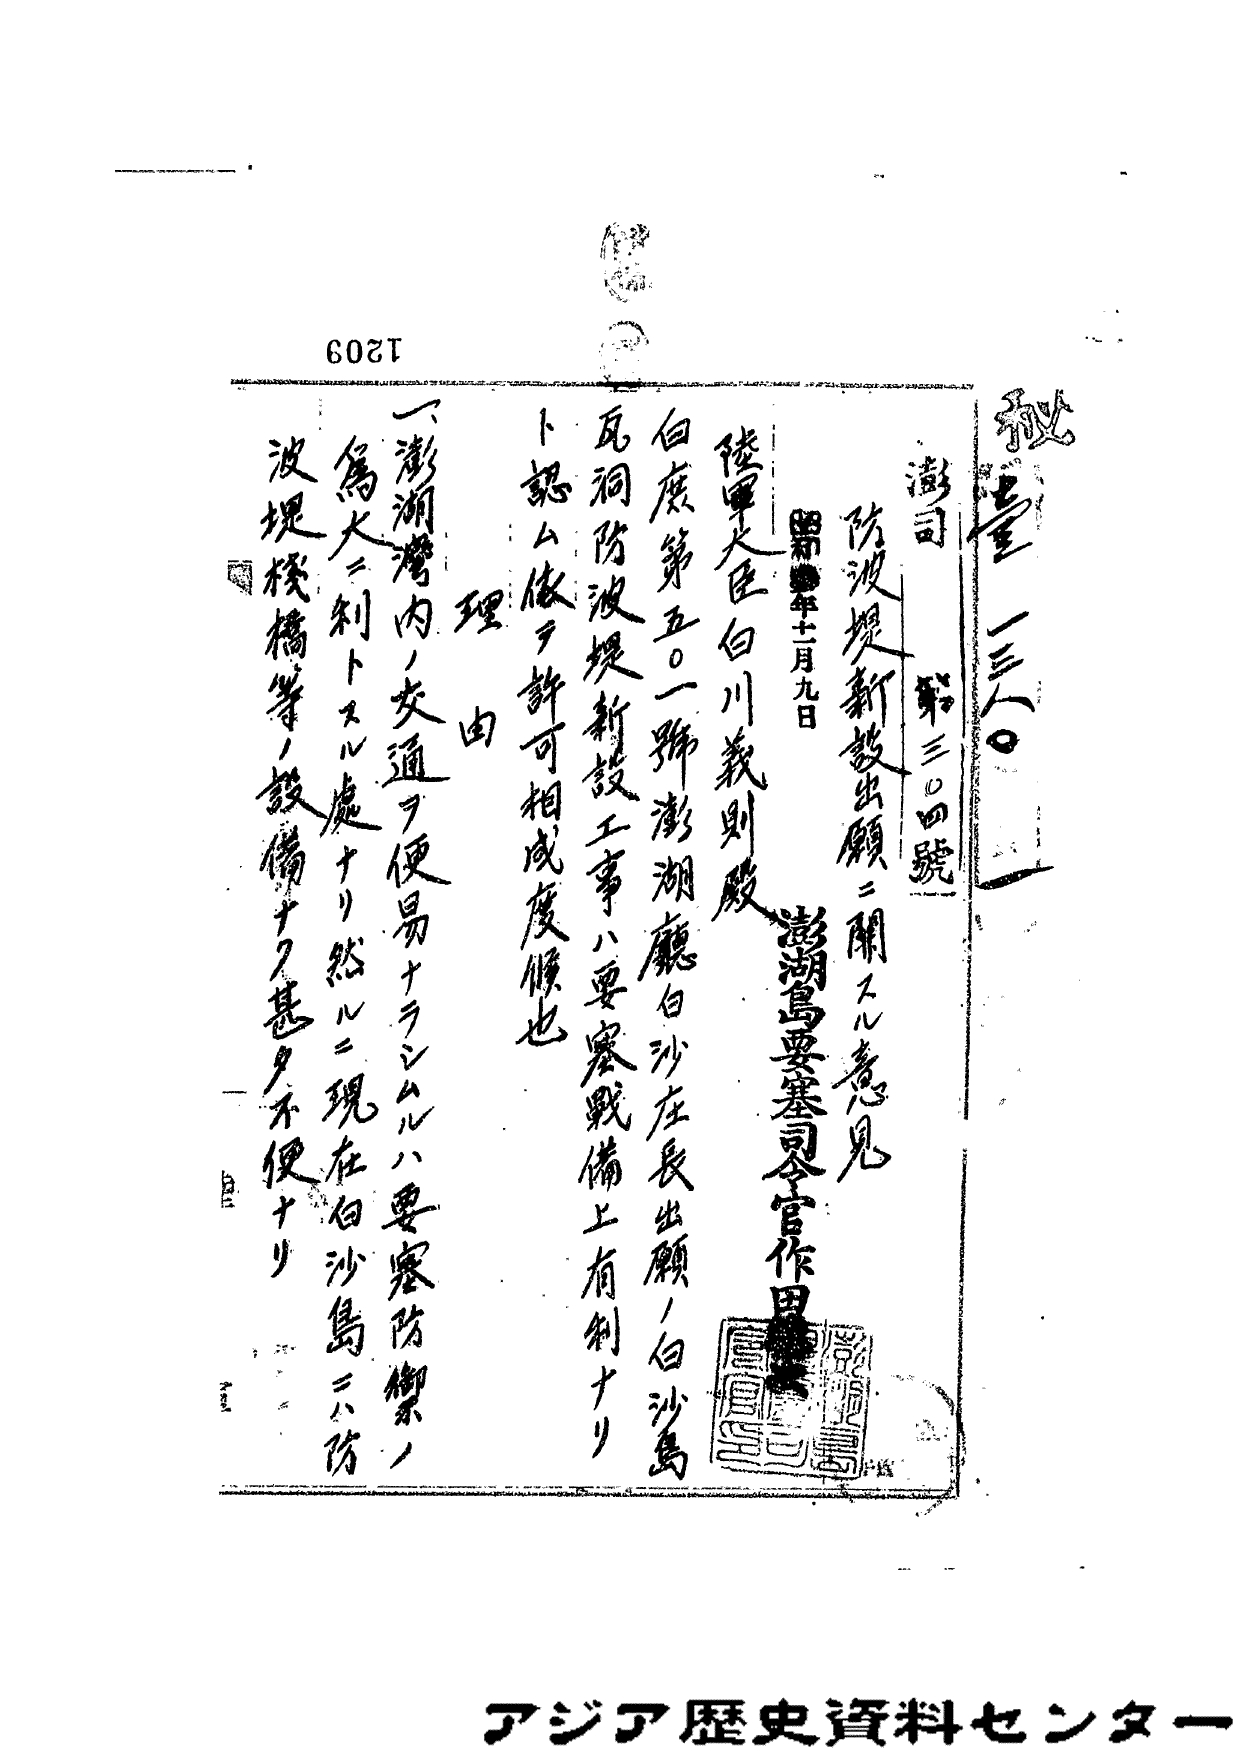 秘
壹 一三八〇
澎司 第三〇四號
防波堤新設出願ニ關スル意見
昭和 年十一月九日
澎湖島要塞司令官作田
陸軍大臣白川義則殿
白庶第五〇一號澎湖廳白沙庄長出願ノ白沙島
瓦洞防波堤新設工事ハ要塞戰備上有利ナリ
ト認ム依テ許可相成度候也
理由
一、澎湖灣内ノ交通ヲ便易ナラシムルハ要塞防禦ノ
爲大ニ利トスル處ナリ然ルニ現在白沙島ニハ防
波堤棧橋等ノ設備ナク甚タ不便ナリ
1209
アジア歴史資料センター